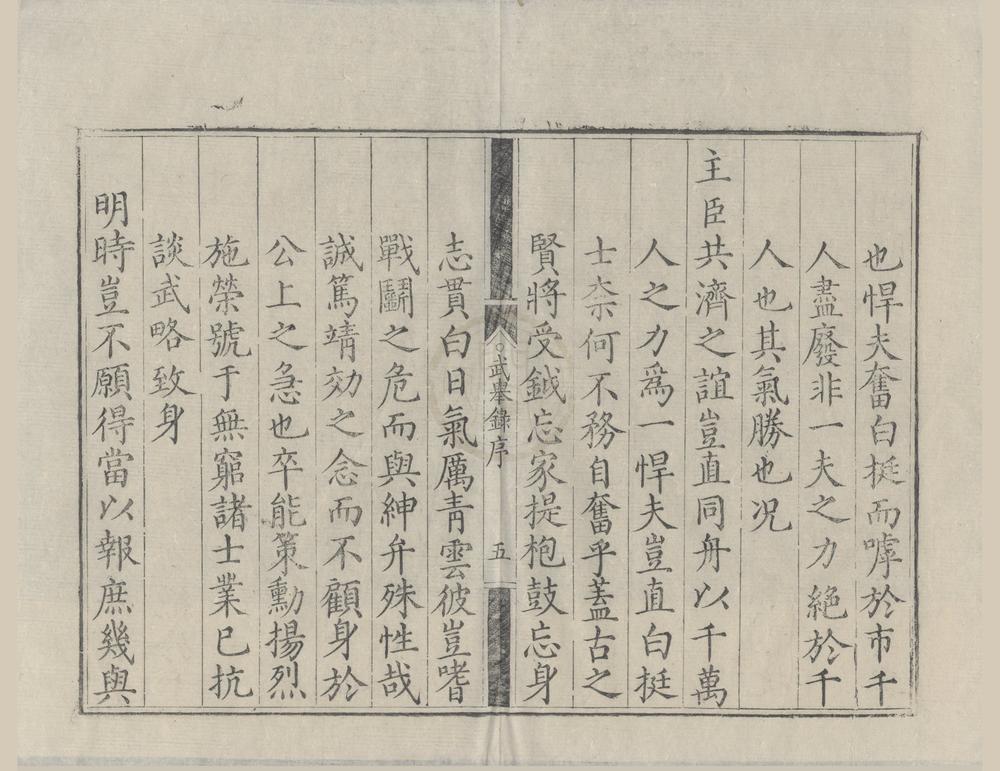 也悍夫奮白挺而嘑於市千
人盡廢非一夫之力絕於千
人也其氣勝也况
主臣共濟之誼豈直同舟以千萬
人之力爲一悍夫豈直白挺
士柰何不務自奮乎蓋古之
賢將受鉞忘家提枹鼓忘身
武舉錄序
五
志貫白日氣厲青雲彼豈嗜
戰鬭之危而與紳弁殊性哉
誠篤靖効之念而不顧身於
公上之急也卒能策勳揚烈
施榮號于無窮諸士業已抗
談武略致身
明時豈不願得當以報庶幾與